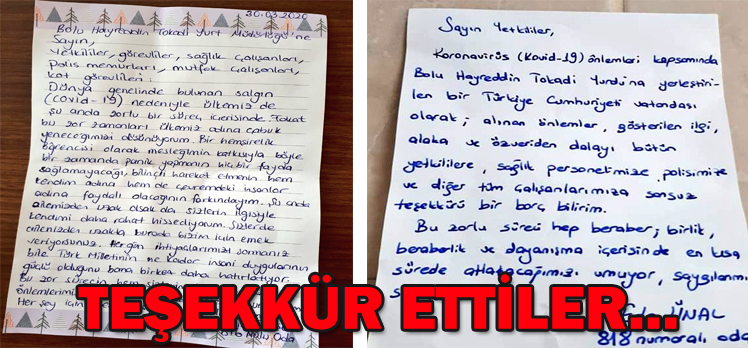 30.03.2020
Bolu Hayreddin Tokadi Yurt Müdürlüğü'ne
Sayın,
Yetkililer, görevliler, sağlık çalışanları,
polis memurları, mutfak çalışanları,
kat görevlileri.
Dünya genelinde bulunan salgın
(Covid-19) nedeniyle ülkemiz de
şu anda zorlu bir süreç içerisinde. Fakat
bu zor zamanları ülkemiz adına çabuk
yeneceğimizi düşünüyorum. Bir hemşirelik
öğrencisi olarak mesleğimin katkısıyla böyle
bir zamanda panik yapmanın hiç bir fayda
sağlamayacağı, bilinçli hareket etmenin hem
kendim adına hem de çevremdeki insanlar
adına faydalı olacağının farkındayım. Şu anda
ailemizden uzak olsak da sizlerin ilgisiyle
kendimi daha rahat hissediyorum. Sizlerde
ailenizden uzakta burada bizim için emek
veriyorsunuz. Her gün ihtiyaçlarımızı sormanız
bile Türk Milletinin ne kadar insani duygularının
güçlü olduğunu bana birkez daha hatırlatıyor.
Bu zor sürecin hem
önlemlerimizi
Her şey için
Nolu Oda
Sayın Yetkililer,
Koronavirüs (Kovid-19) önlemleri kapsamında
Bolu Hayreddin Tokadi Yurdu'na yerleştiri-
len bir Türkiye Cumhuriyeti vatandaşı
olarak; alınan önlemler, gösterilen ilgi,
alaka ve özveriden dolayı bütün
yetkililere, sağlık personelimize, polisimize
ve diğer tüm çalışanlarımıza sonsuz
teşekkürü bir borç bilirim.
Bu zorlu süreci hep beraber; birlik,
beraberlik ve dayanışma içerisinde en kısa
sürede atlatacağımızı umuyor, saygılarımı
ÜNAL
818 numaralı oda
TEŞEKKÜR ETTİLER...